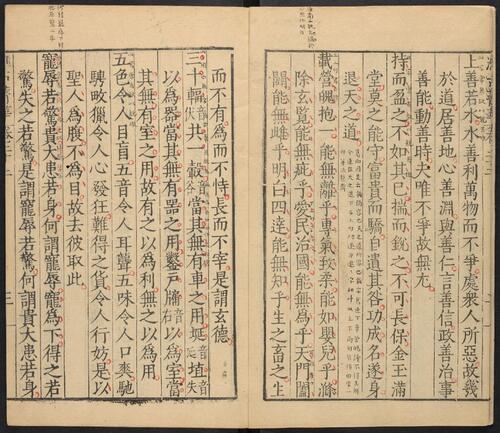 上善若水水善利萬物而不爭處衆人所惡故幾
於道居善地心善淵與善仁言善信政善治事
善能動善時夫唯不爭故無尤
持而盈之不如其已揣而銳之不可長保金玉滿
堂莫之能守富貴而驕自遺其咎功成名遂身
退天之道
載營魄抱一能無離乎專氣致柔能如嬰兒乎滌
除玄覽能無疵乎愛民治國能無為乎天門闔
闢能無雌乎明白四達能無知乎生之畜之生
而不有為而不恃長而不宰是謂玄德
三十輻音伏共一轂音谷當其無有車之用埏埴
以為器當其無有器之用鑿戶牖音有以為室當
其無有室之用故有之以為利無之以為用
五色令人目盲五音令人耳聾五味令人口爽馳
騁畋獵令人心發狂難得之貨令人行妨是以
聖人為腹不為目故去彼取此
寵辱若驚貴大患若身何謂寵辱寵為下得之若
驚失之若驚是謂寵辱若驚何謂貴大患若身